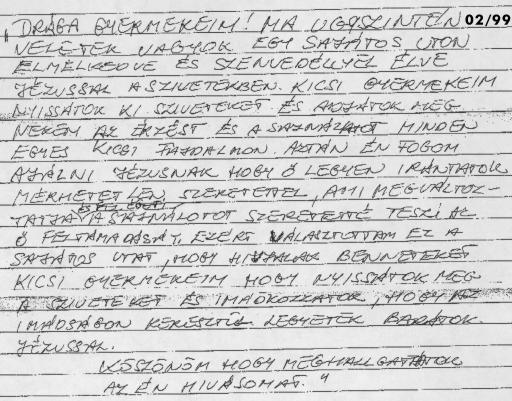 „DRÁGA GYERMEKEIM! MA UGYSZINTÉN 02/99
VELETEK VAGYOK EGY SAJÁTOS UTON
ELMÉLKEDVE ÉS SZENVEDÉLLYEL ÉLVE
JÉZUSSAL A SZIVETEKBEN. KICSI GYERMEKEIM
NYISSÁTOK KI SZIVETEKET ÉS ADJÁTOK MEG
NEKEM AZ ÉRZÉST ÉS A SAJNÁLATOT MINDEN
EGYES KICSI FAJDALMON. AZTÁN ÉN FOGOM
AJÁLNI JÉZUSNAK HOGY Ő LEGYEN IRÁNTATOK
MÉRHETETLEN SZERETETTEL, AMI MEGVÁLTOZ-
TATJA A SAJNÁLOTOT SZERETETTÉ TESZI AZ
Ő FELTÁMADÁSÁT. EZÉRT VÁLASZTOTTAM EZ A
SAJÁTOS UTAT, HOGY HIVJALAK BENNETEKET
KICSI GYERMEKEIM HOGY NYISSÁTOK MEG
A SZIVETEKET ÉS IMÁDKOZZATOK, HOGY AZ
IMÁDSÁGON KERESZTÜL LEGYETEK BARÁTOK.
JÉZUSSAL.
KÖSZÖNÖM HOGY MEGHALLGATTÁTOK
AZ ÉN HIVÁSOMAT."